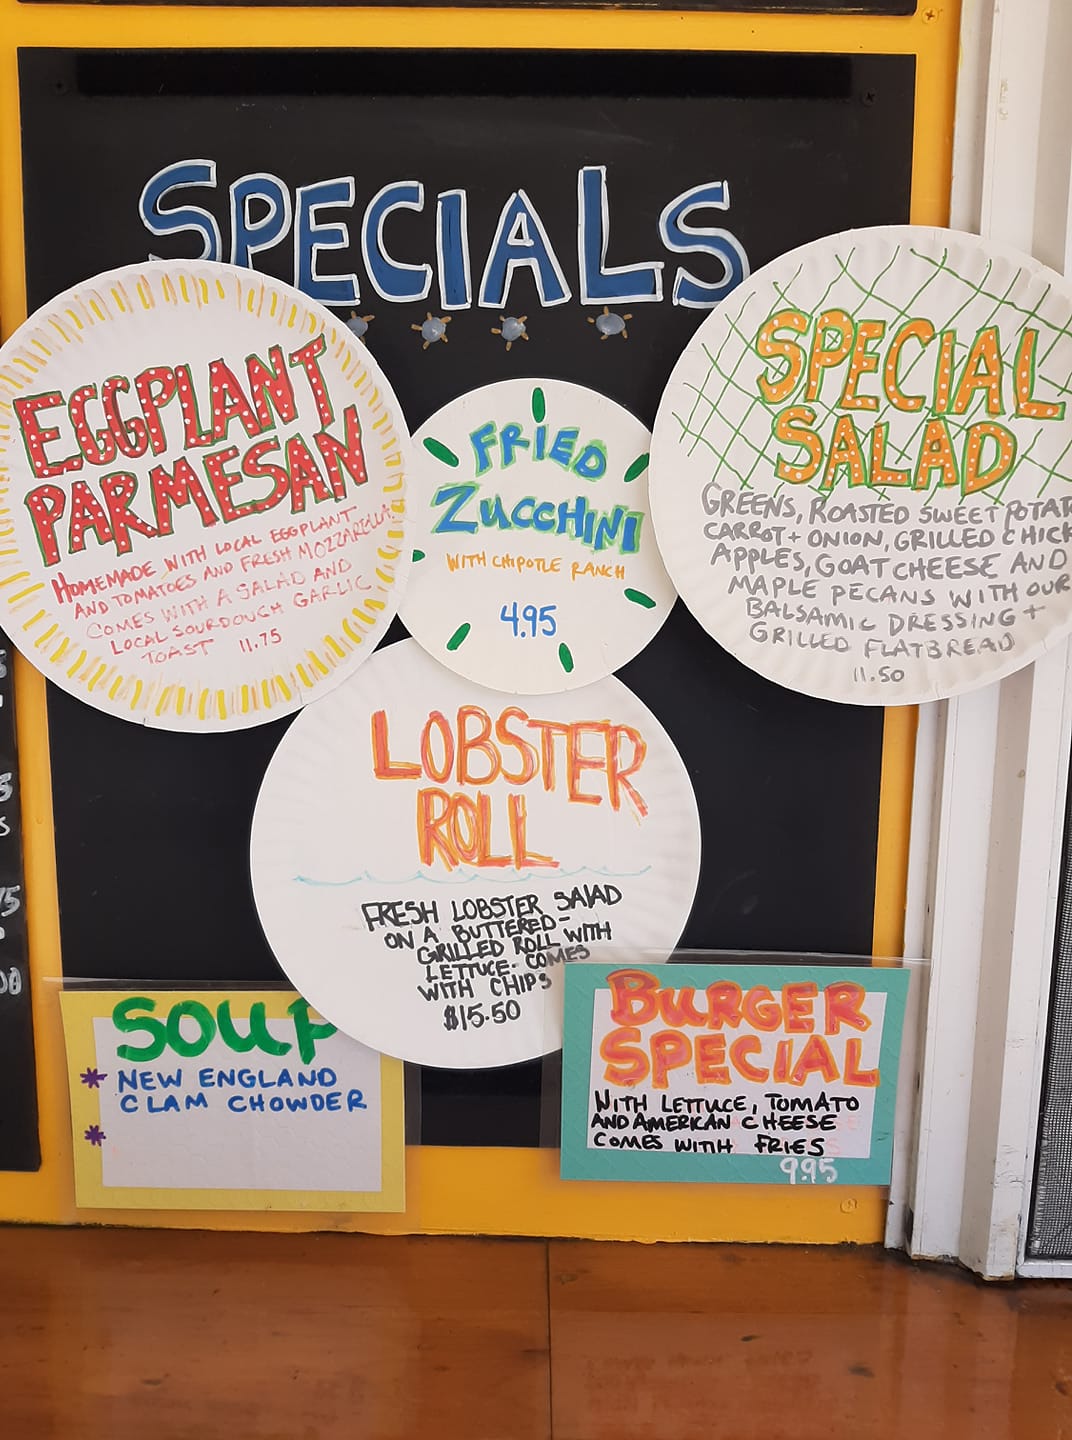 SPECIALS
EGGPLANT
PARMESAN
HOMEMADE WITH LOCAL EGGPLANT
AND TOMATOES AND FRESH MOZZARELLA.
COMES WITH A SALAD AND
LOCAL SOURDOUGH GARLIC
TOAST 11.75
FRIED
ZUCCHINI
WITH CHIPOTLE RANCH
4.95
SPECIAL
SALAD
GREENS, ROASTED SWEET POTAT
CARROT + ONION, GRILLED CHICK
APPLES, GOAT CHEESE AND
MAPLE PECANS WITH OUR
BALSAMIC DRESSING +
GRILLED FLATBREAD
11.50
LOBSTER
ROLL
FRESH LOBSTER SALAD
ON A BUTTERED-
GRILLED ROLL WITH
LETTUCE. COMES
WITH CHIPS
$15.50
SOUP
* NEW ENGLAND
CLAM CHOWDER
*
BURGER
SPECIAL
WITH LETTUCE, TOMATO
AND AMERICAN CHEESE
COMES WITH FRIES
9.95